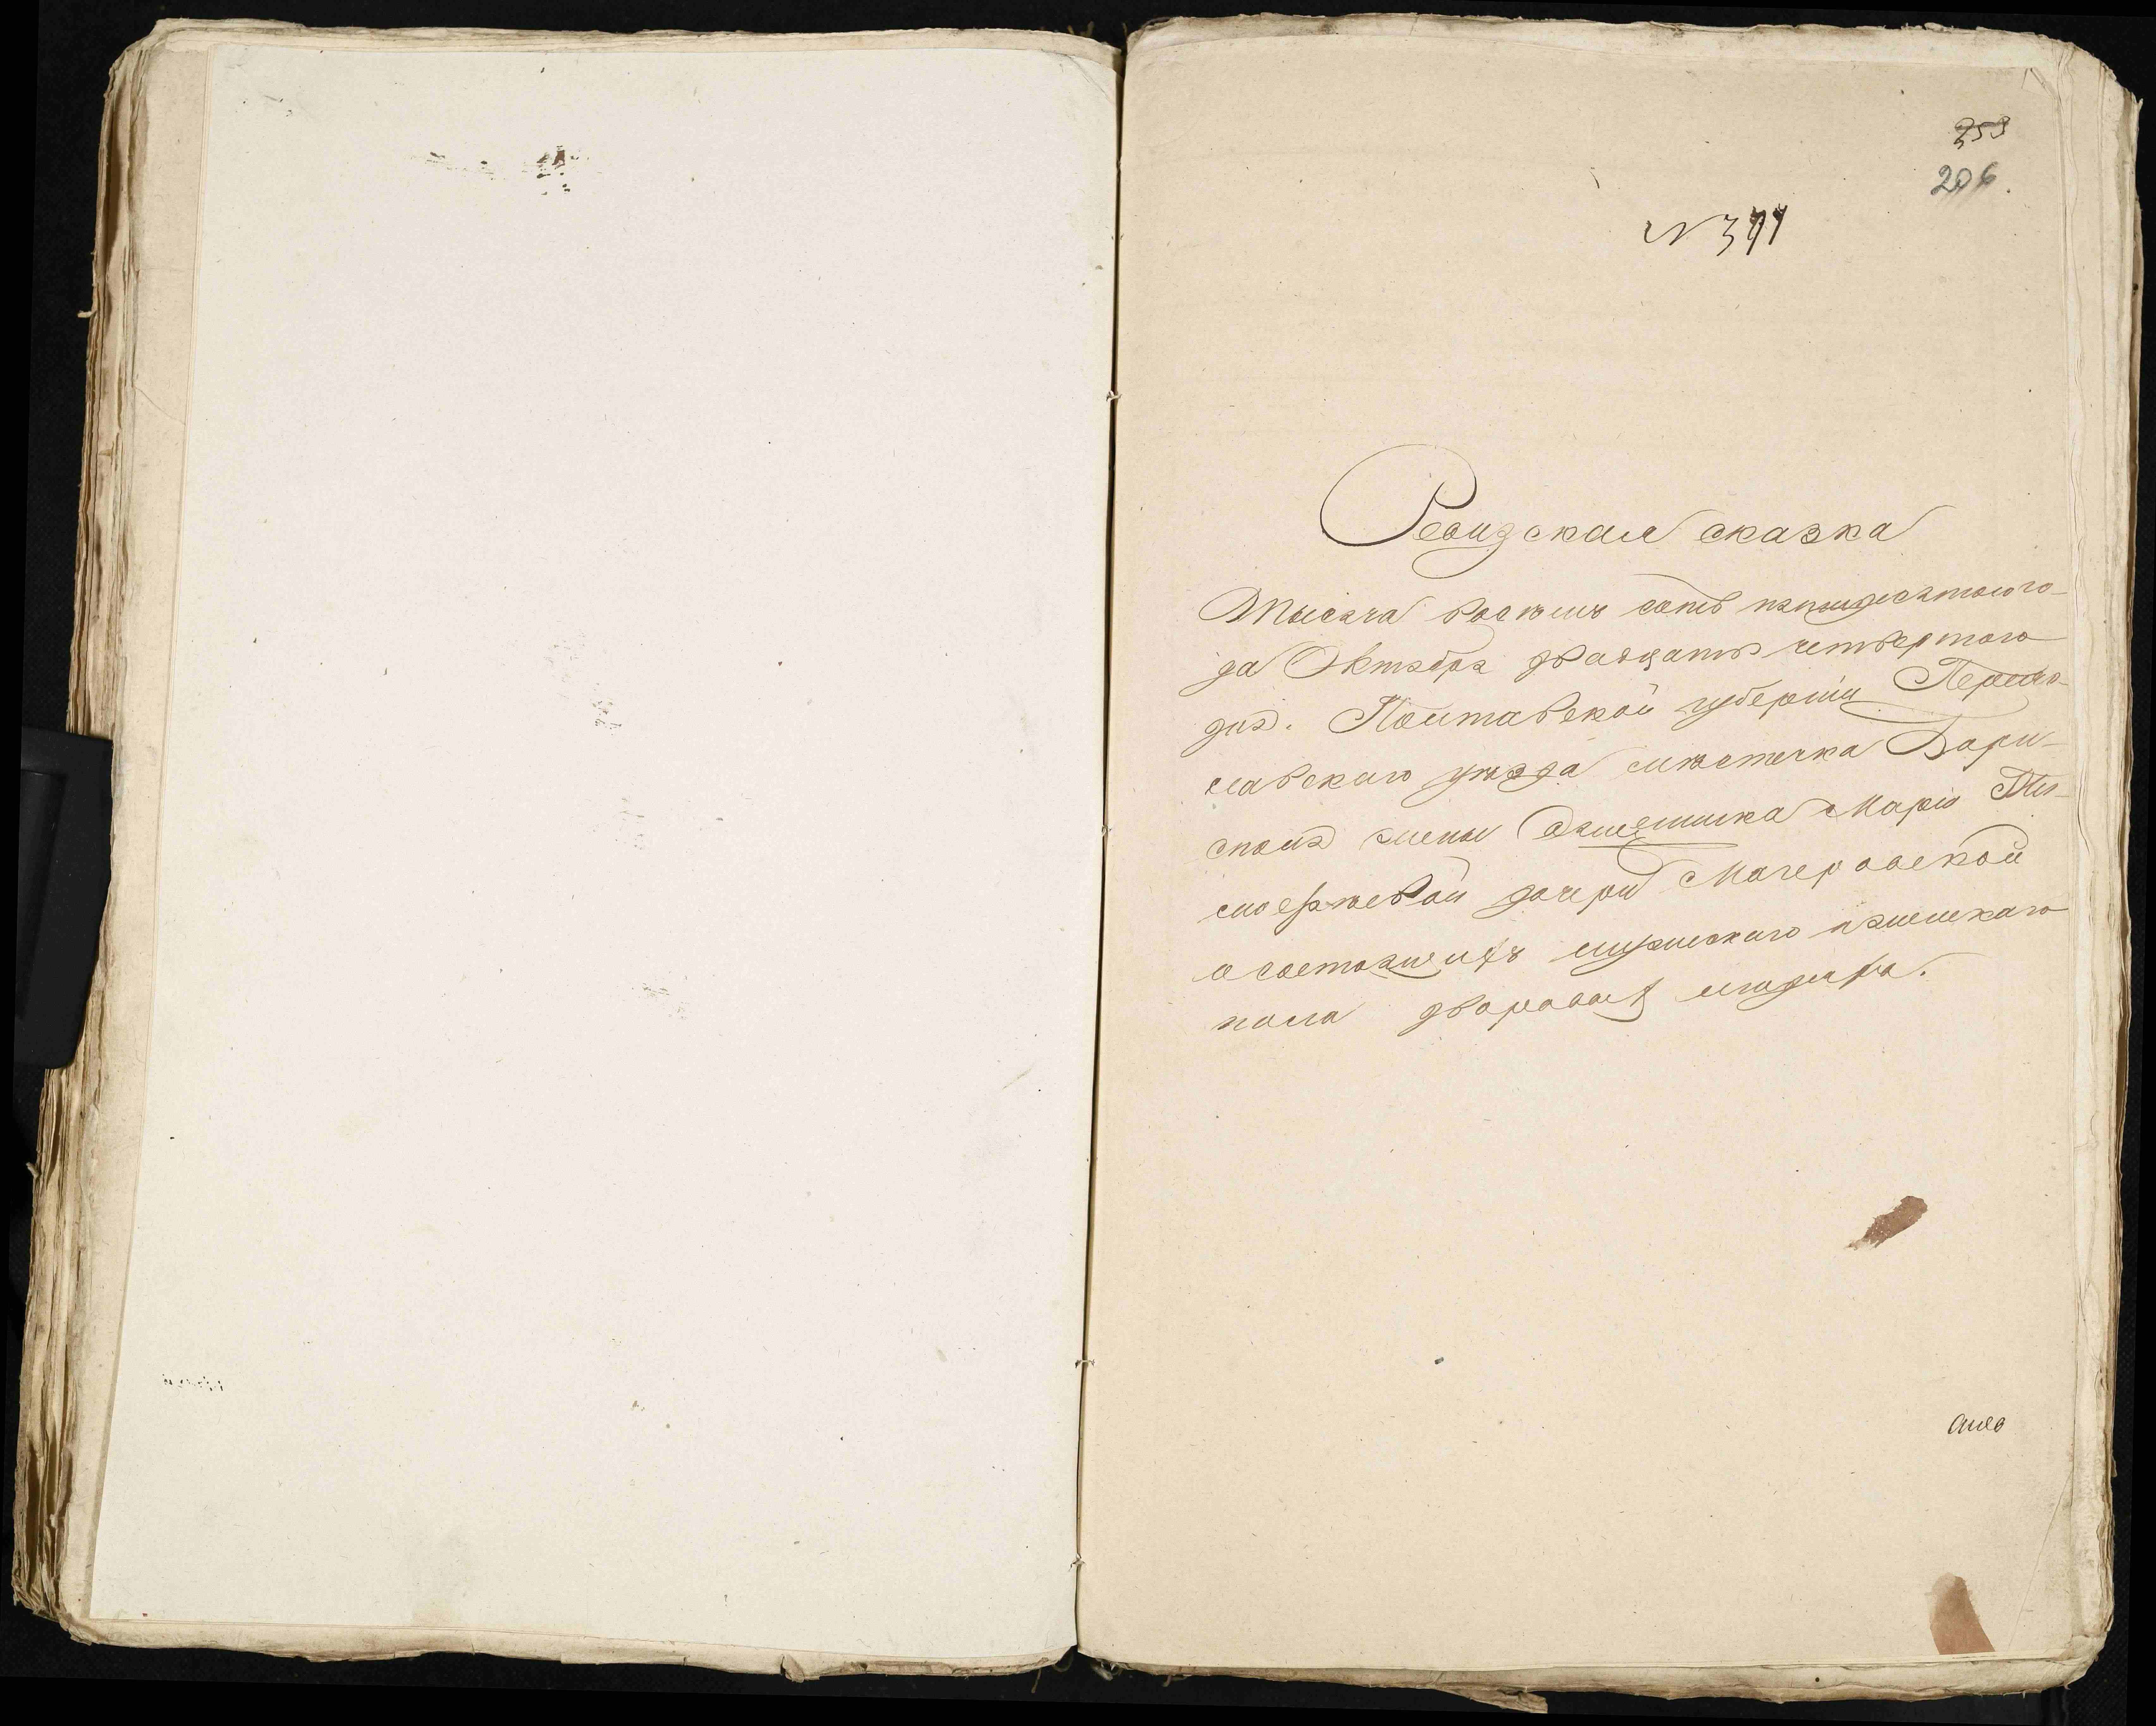 253
206.
N 371
Ревизская сказка
Тысяча восемь сотъ пятидесятого го-
да Октября двадцать четвертого
дня. Полтавской губерніи Переяс-
лавского уѣзда мѣстечка Бори-
споля жены Марiи
дочери Мачеровской
о состоящихъ мужескаго и женскаго
пола дворовых людяхъ.